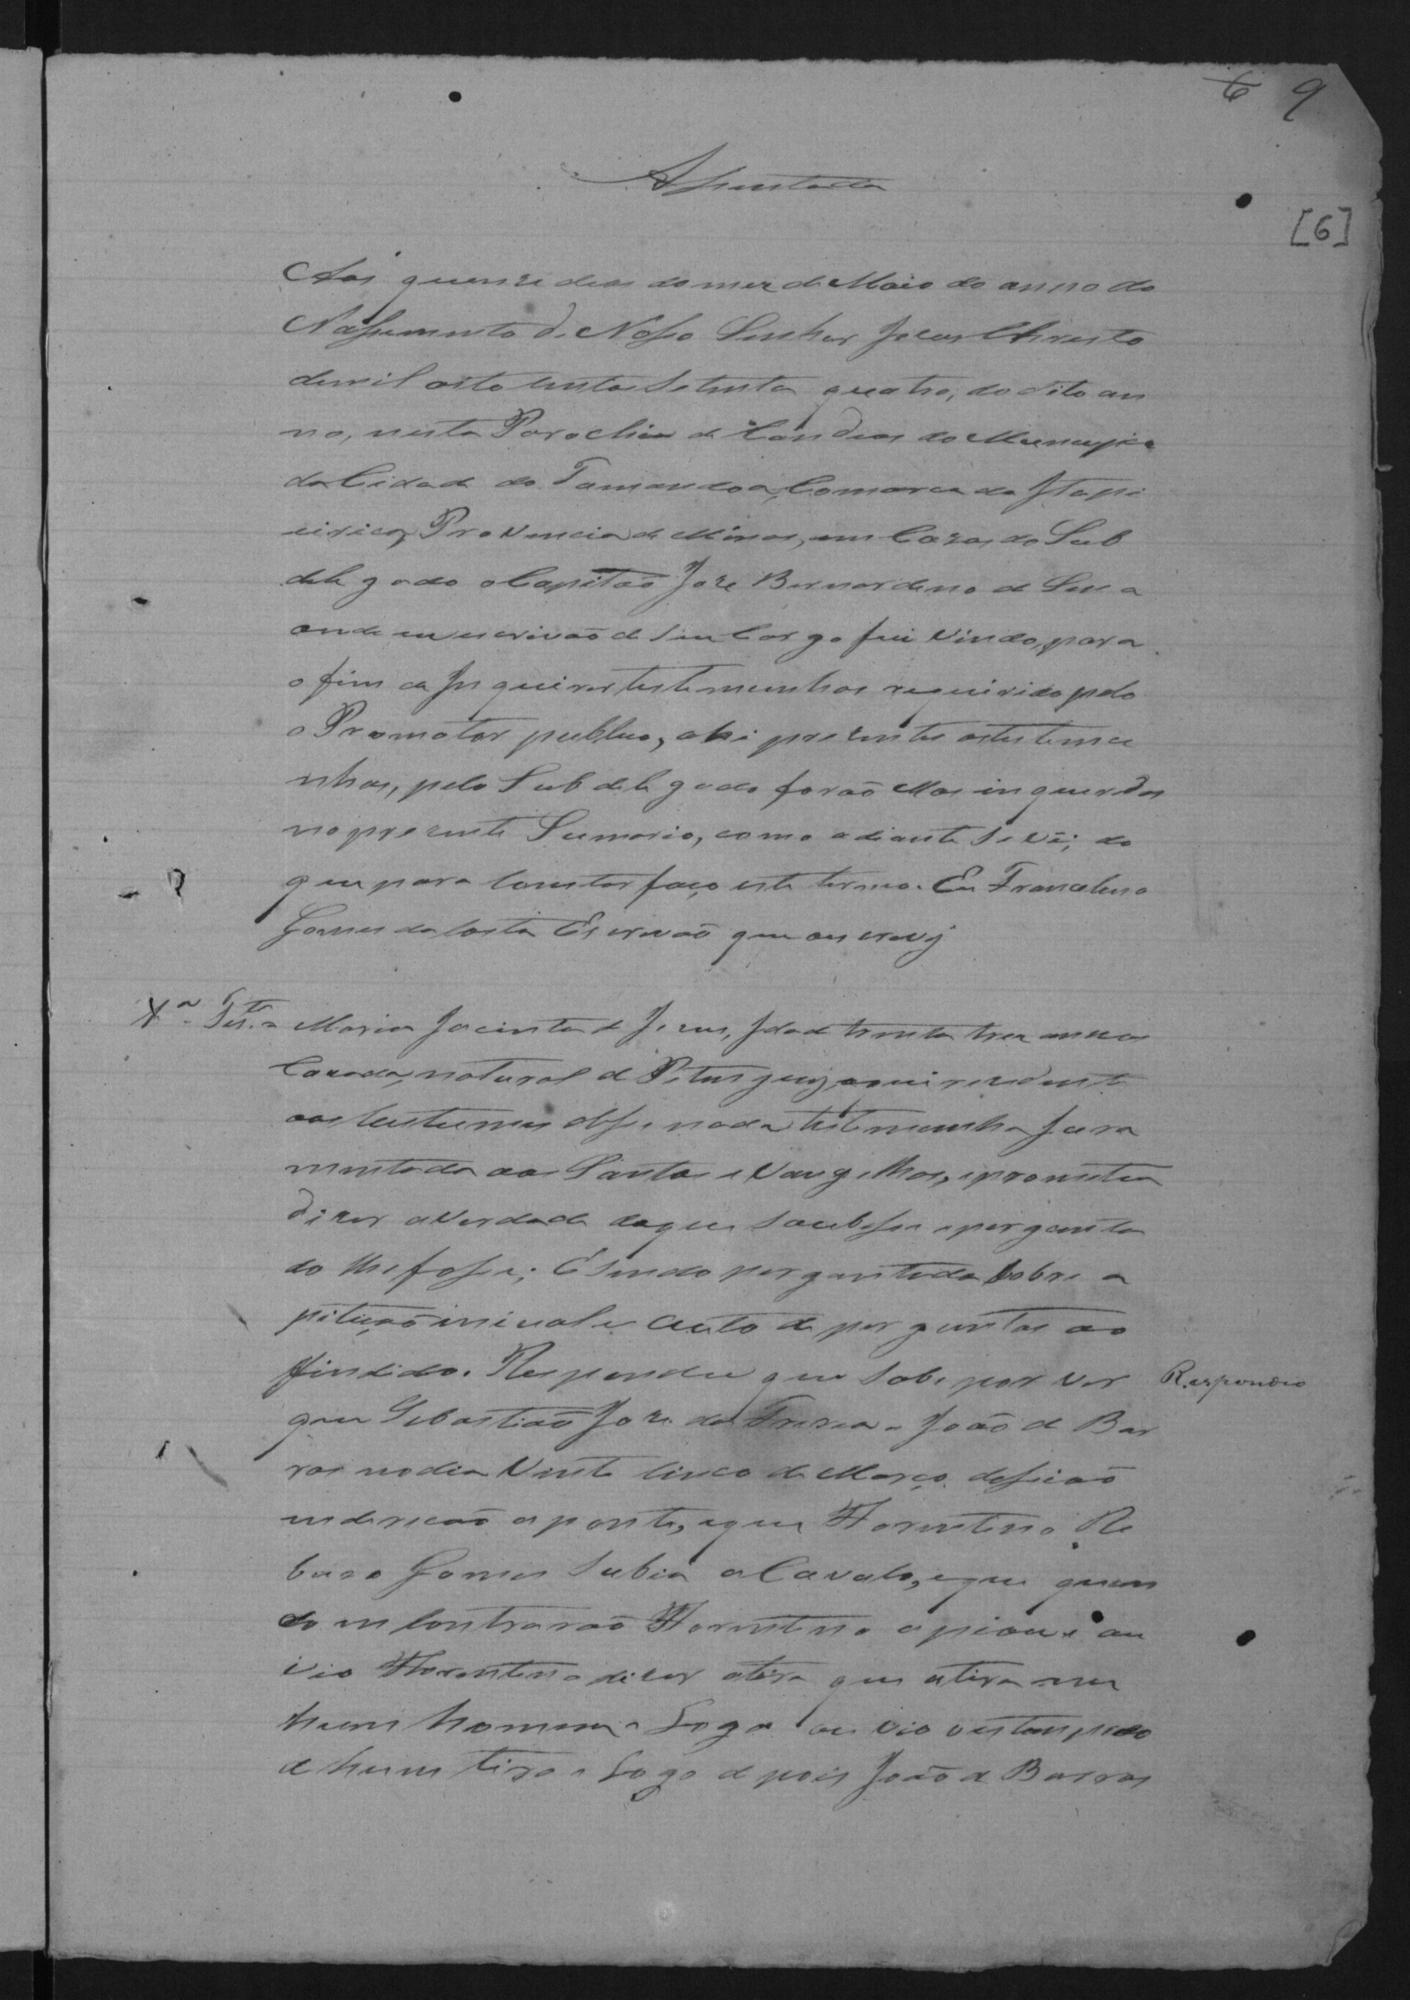 6 9
[6]
Assentada
Aos quinze dias do mez de Maio do anno do
Nassimento de Nosso Senhor Jesus Christo
de mil oito centos Setenta quatro, do dito an
no, nesta Parochia de Candeas do Municipio
da Cidade do Tamandoa, Comarca da Itape
cirica, Provincia de Minas, em Caza do Sub
delegado o Capitão Joze Bernardino de
onde eu escrivão de seu Cargo fui vindo, para
o fim de Inquirir testemunhas requirido pelo
o Promotor publico, ahi prezentes as testemu
nhas, pelo Subdelegado forão ellas inqueridas
no prezente Sumario, como adiante se vê; do
que para Constar faço este termo. Eu Francelino
Gomes da Costa Escrivão que ouscrevy
Ta. Maria Jacinta de Jezus, Idade trinta trez annos
Cazada, natural de Pitanguy, aqui rezidente
aos Custumes disse nada testemunha Jura
mentada aos Santos evangelhos, e prometeu
dizer a verdade do que soubesse e pergunta
do lhe fosse; E sendo perguntada sobre a
pitição inicial e auto de perguntas ao
ffindido. Respondeu que sabe por ver
Respondeo
que Sebastião Joze da e João de Bar
ros no dia vinte Cinco de Março dessião
em dereção a ponte, e que Florentino Re
Gomes subia a Cavalo, e que quan
do encontrarão Florentino apiou e ou
vio Florentino dizer atira que atira em
hum homem e Logo ouvio o estampido
de hum tiro e Logo depois João de Barros